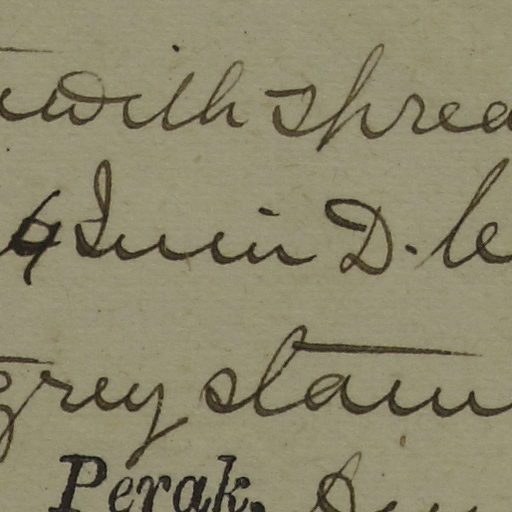 with sprea
4 Lumin D. le
grey stam
Perak.